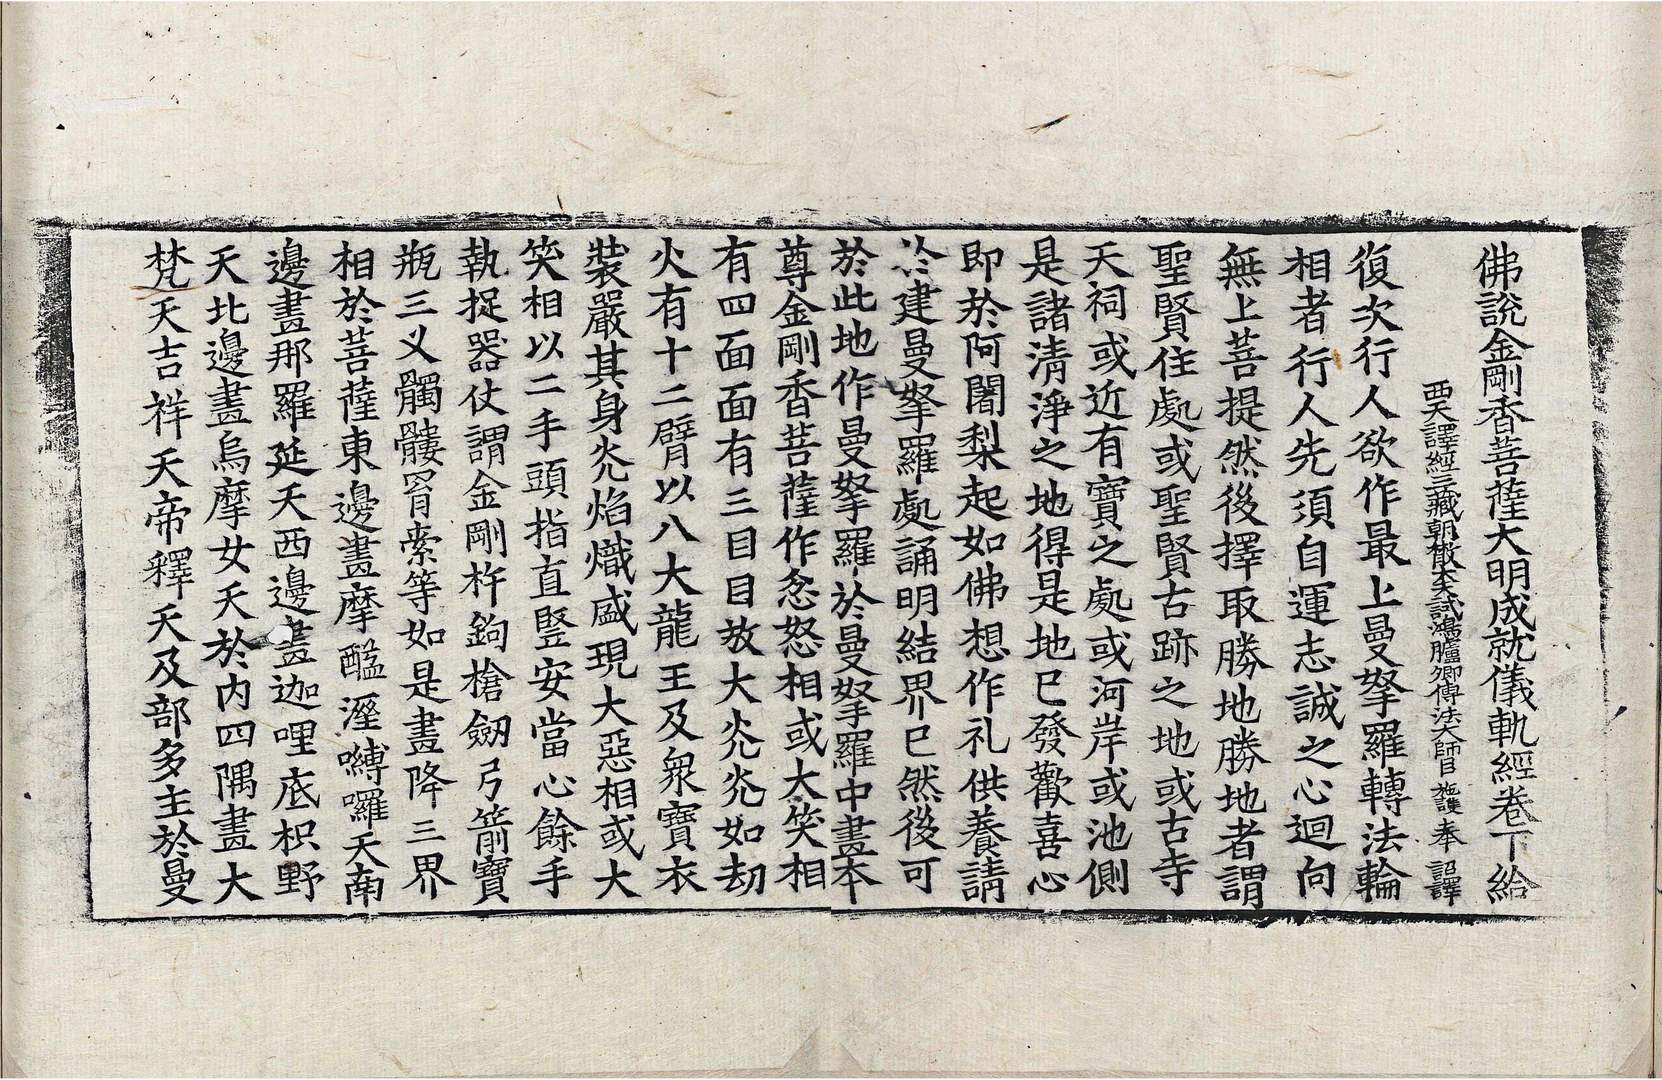 佛說金剛香菩薩大明成就儀軌經卷下 給
西天譯經三藏朝散大夫試鴻臚卿傳法大師臣 施護 奉 詔譯
復次行人欲作最上曼拏羅轉法輪
相者行人先須自運志誠之心迴向
無上菩提然後擇取勝地勝地者謂
聖賢住處或聖賢古跡之地或古寺
天祠或近有寶之處或河岸或池側
是諸清淨之地得是地已發歡喜心
即於阿闍梨起如佛想作礼供養請
於建曼拏羅處誦明結界已然後可
於此地作曼拏羅於曼拏羅中畫本
尊金剛香菩薩作忿怒相或大笑相
有四面面有三目目放大光光如劫
火有十二臂以八大龍王及衆寶衣
裝嚴其身光焰熾盛現大惡相或大
笑相以二手頭指直竪安當心餘手
執捉器仗謂金剛杵鉤槍劒弓箭寶
瓶三叉髑髏罥索等如是畫降三界
相於菩薩東邊畫摩醯溼嚩囉天南
邊畫那羅延天西邊畫迦哩底枳野
天北邊畫烏摩女天於内四隅畫大
梵天吉祥天帝釋天及部多主於曼